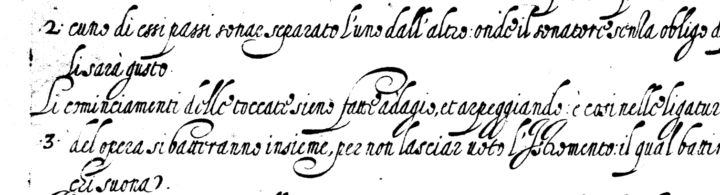 2. cuno di essi passi sonar separato l'uno dall'altro: onde il sonatore senza obligo d
li sarà gusto.
Li cominciamenti delle toccate sieno fatte adagio, et arpeggiando: è cosi nelle ligatur
3. del opera si batteranno insieme, per non lasciar voto l'Istromento: il qual battim
chi suona.